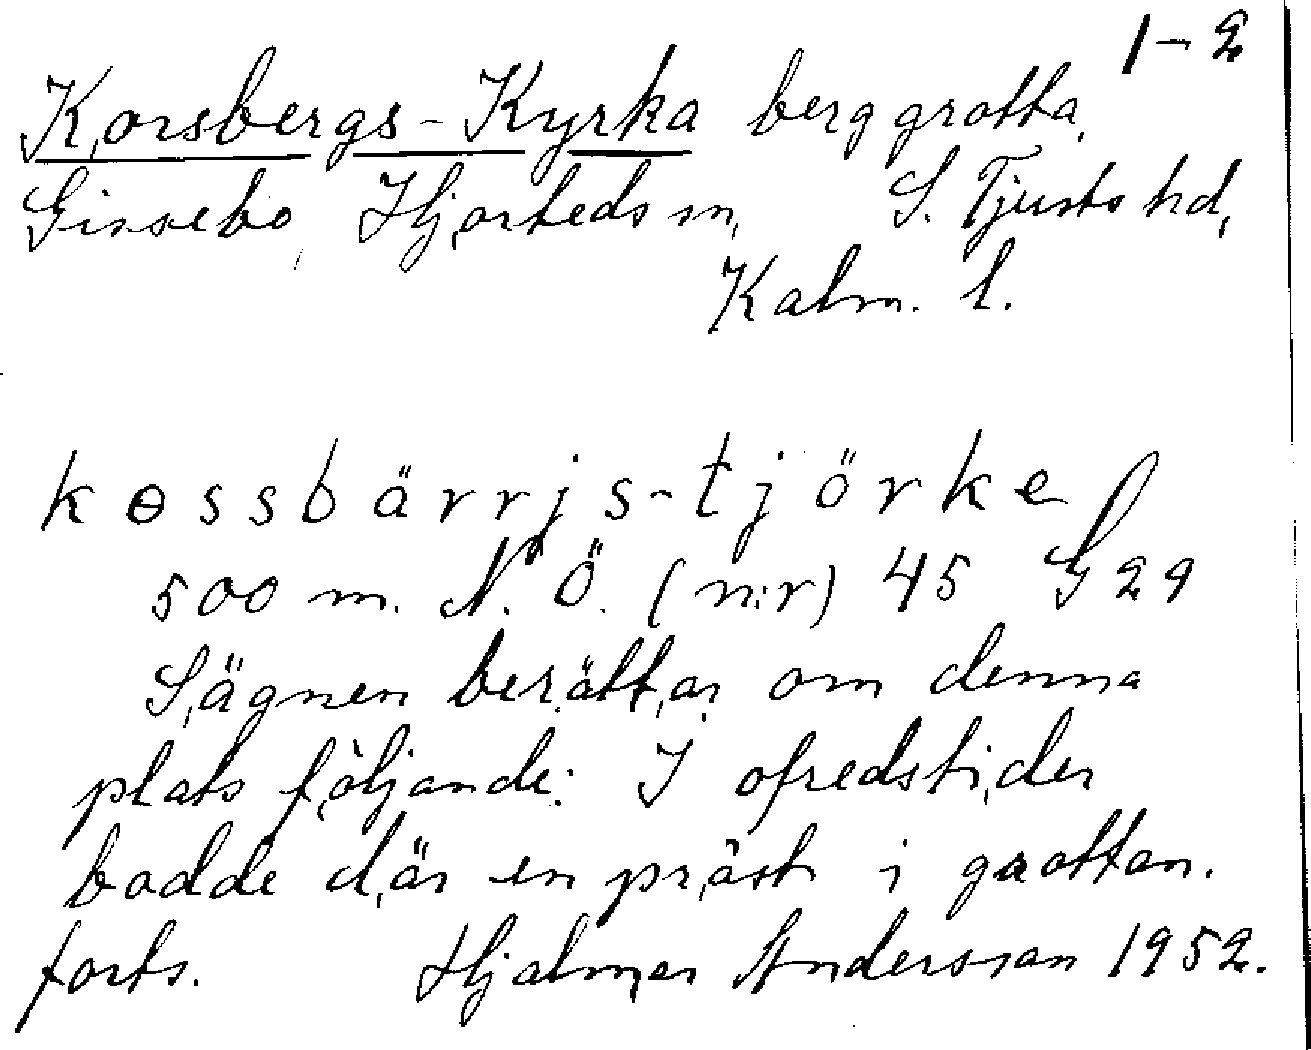 1-2
Korsbergs-Kyrka berggrotta,
Ginsebo, Hjorteds sn, S. Tjusts hd,
Kalm. l.
kɵssbärrjs-tjörke
500 m. N.Ö. (n:r) 45 G 29
Sägnen berättar om denna
plats följande: I ofredstider
bodde där en präst i grottan.
forts. Hjalmar Andersson 1952.